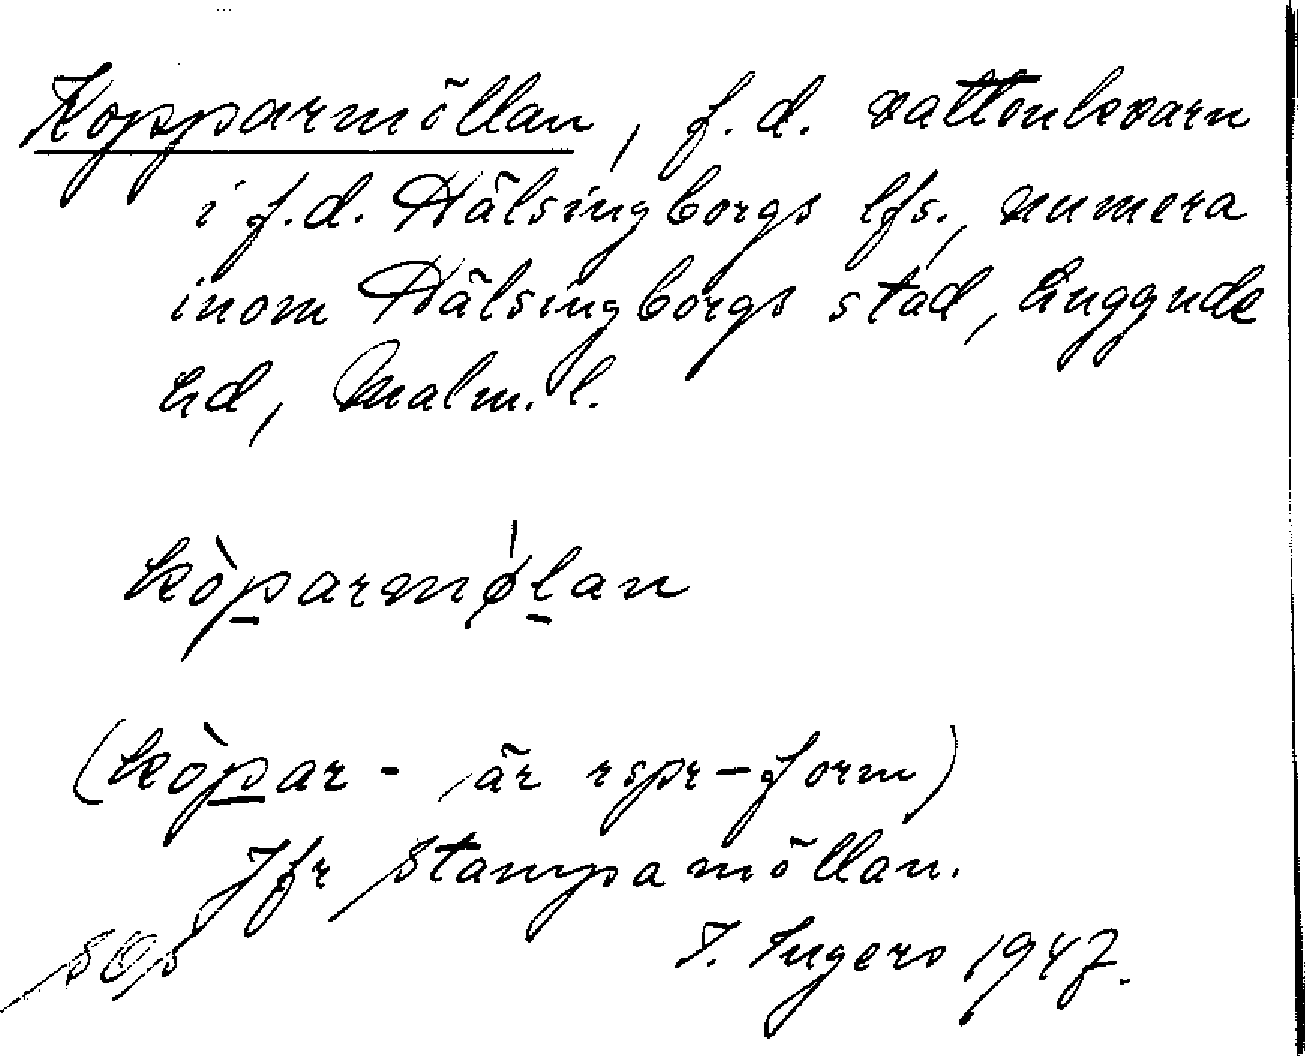 Kopparmöllan, f.d. vattenkvarn
i f.d. Hälsingborgs lfs., numera
inom Hälsingborgs stad, Luggude
hd, Malm. l.
kòparmǿlan
(kòpar- är rspr-form)
Jfr Stampamöllan.
SOS I. Ingers 1947.